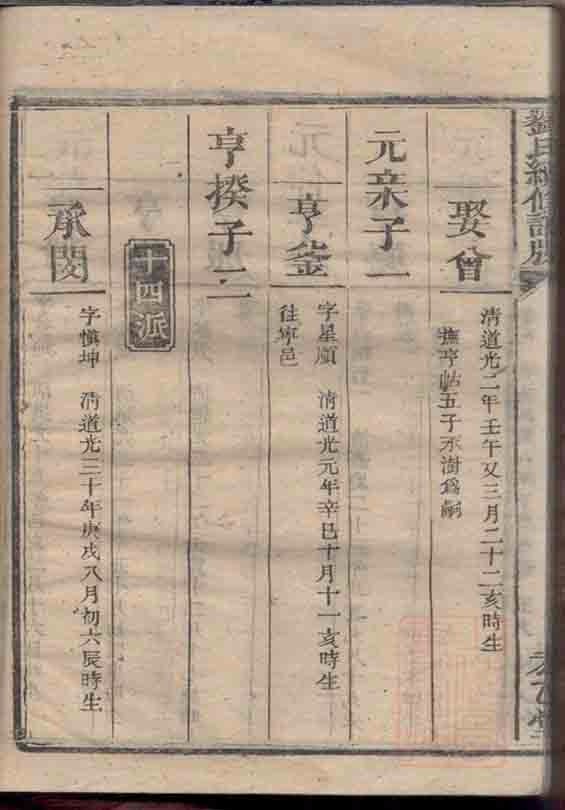 娶曾
清道光二年壬午又三月二十二亥時生
撫亨帖五子承澍為嗣
元亲子一
亨鉴
字星廣 清道光元年辛巳十月十一亥時生
往寧邑
亨揆子二
十四派
承閔
字慎坤 清道光三十年庚戌八月初六辰時生